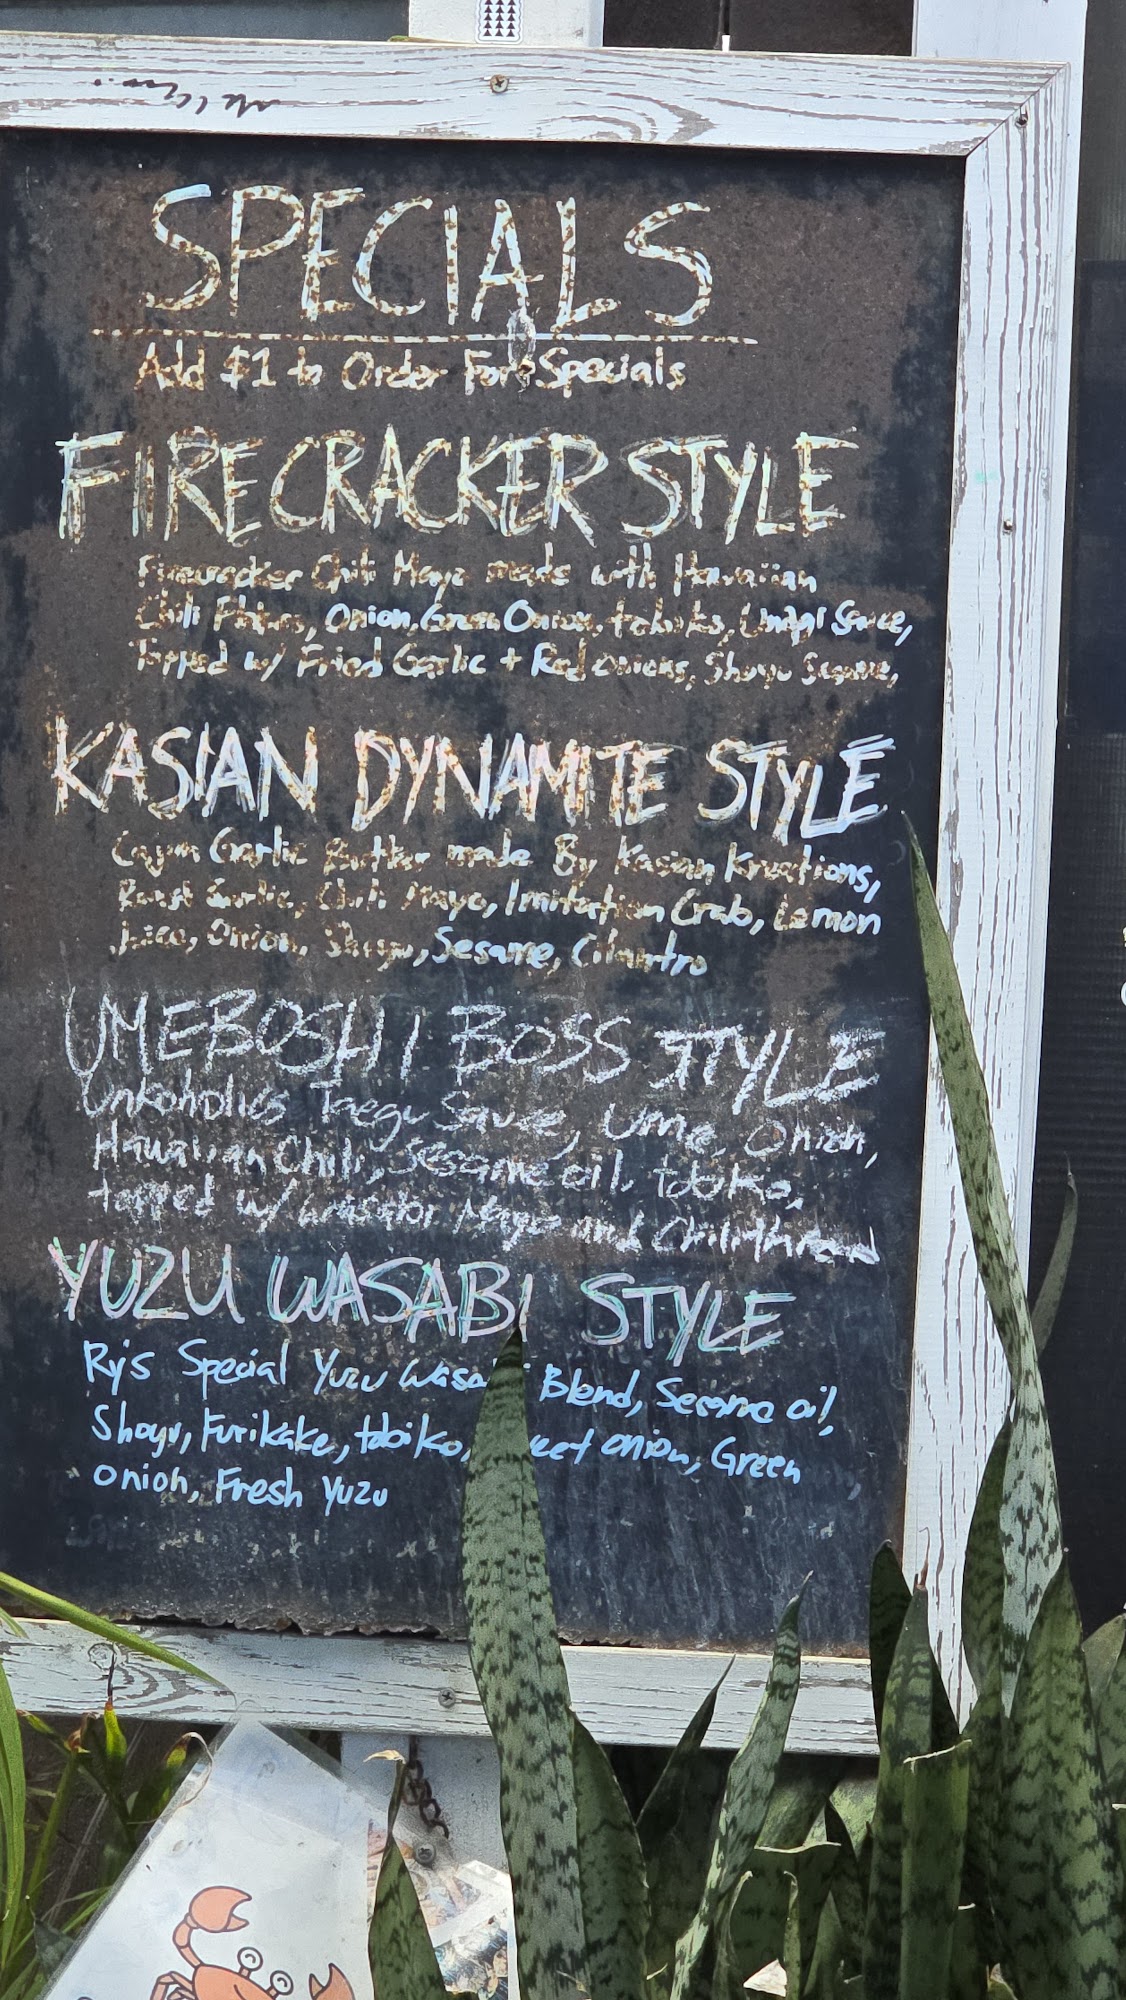 SPECIALS
Add $1 to Order For Specials
FIRECRACKER STYLE
Firecracker Chili Mayo made with Hawaiian
Chili Flakes, Onion, Green Onion, tobiko, Unagi Sauce,
Topped w/ Fried Garlic + Red onions, Shoyu Sesame,
KASIAN DYNAMITE STYLE
Cajun Garlic Butter made By Kasian Kreations,
Roast Garlic, Chili Mayo, Imitation Crab, Lemon
Juice, Onion, Shoyu, Sesame, Cilantro
UMEBOSHI BOSS STYLE
Unkoholics Taegu Sauce, Ume, Onion,
Hawaiian Chili, Sesame oil, tobiko,
topped w/ wasabi Mayo and Chili thread
YUZU WASABI STYLE
Ry's Special Yuzu Wasabi Blend, Sesame oil,
Shoyu, Furikake, tobiko, sweet onion, Green
onion, Fresh Yuzu